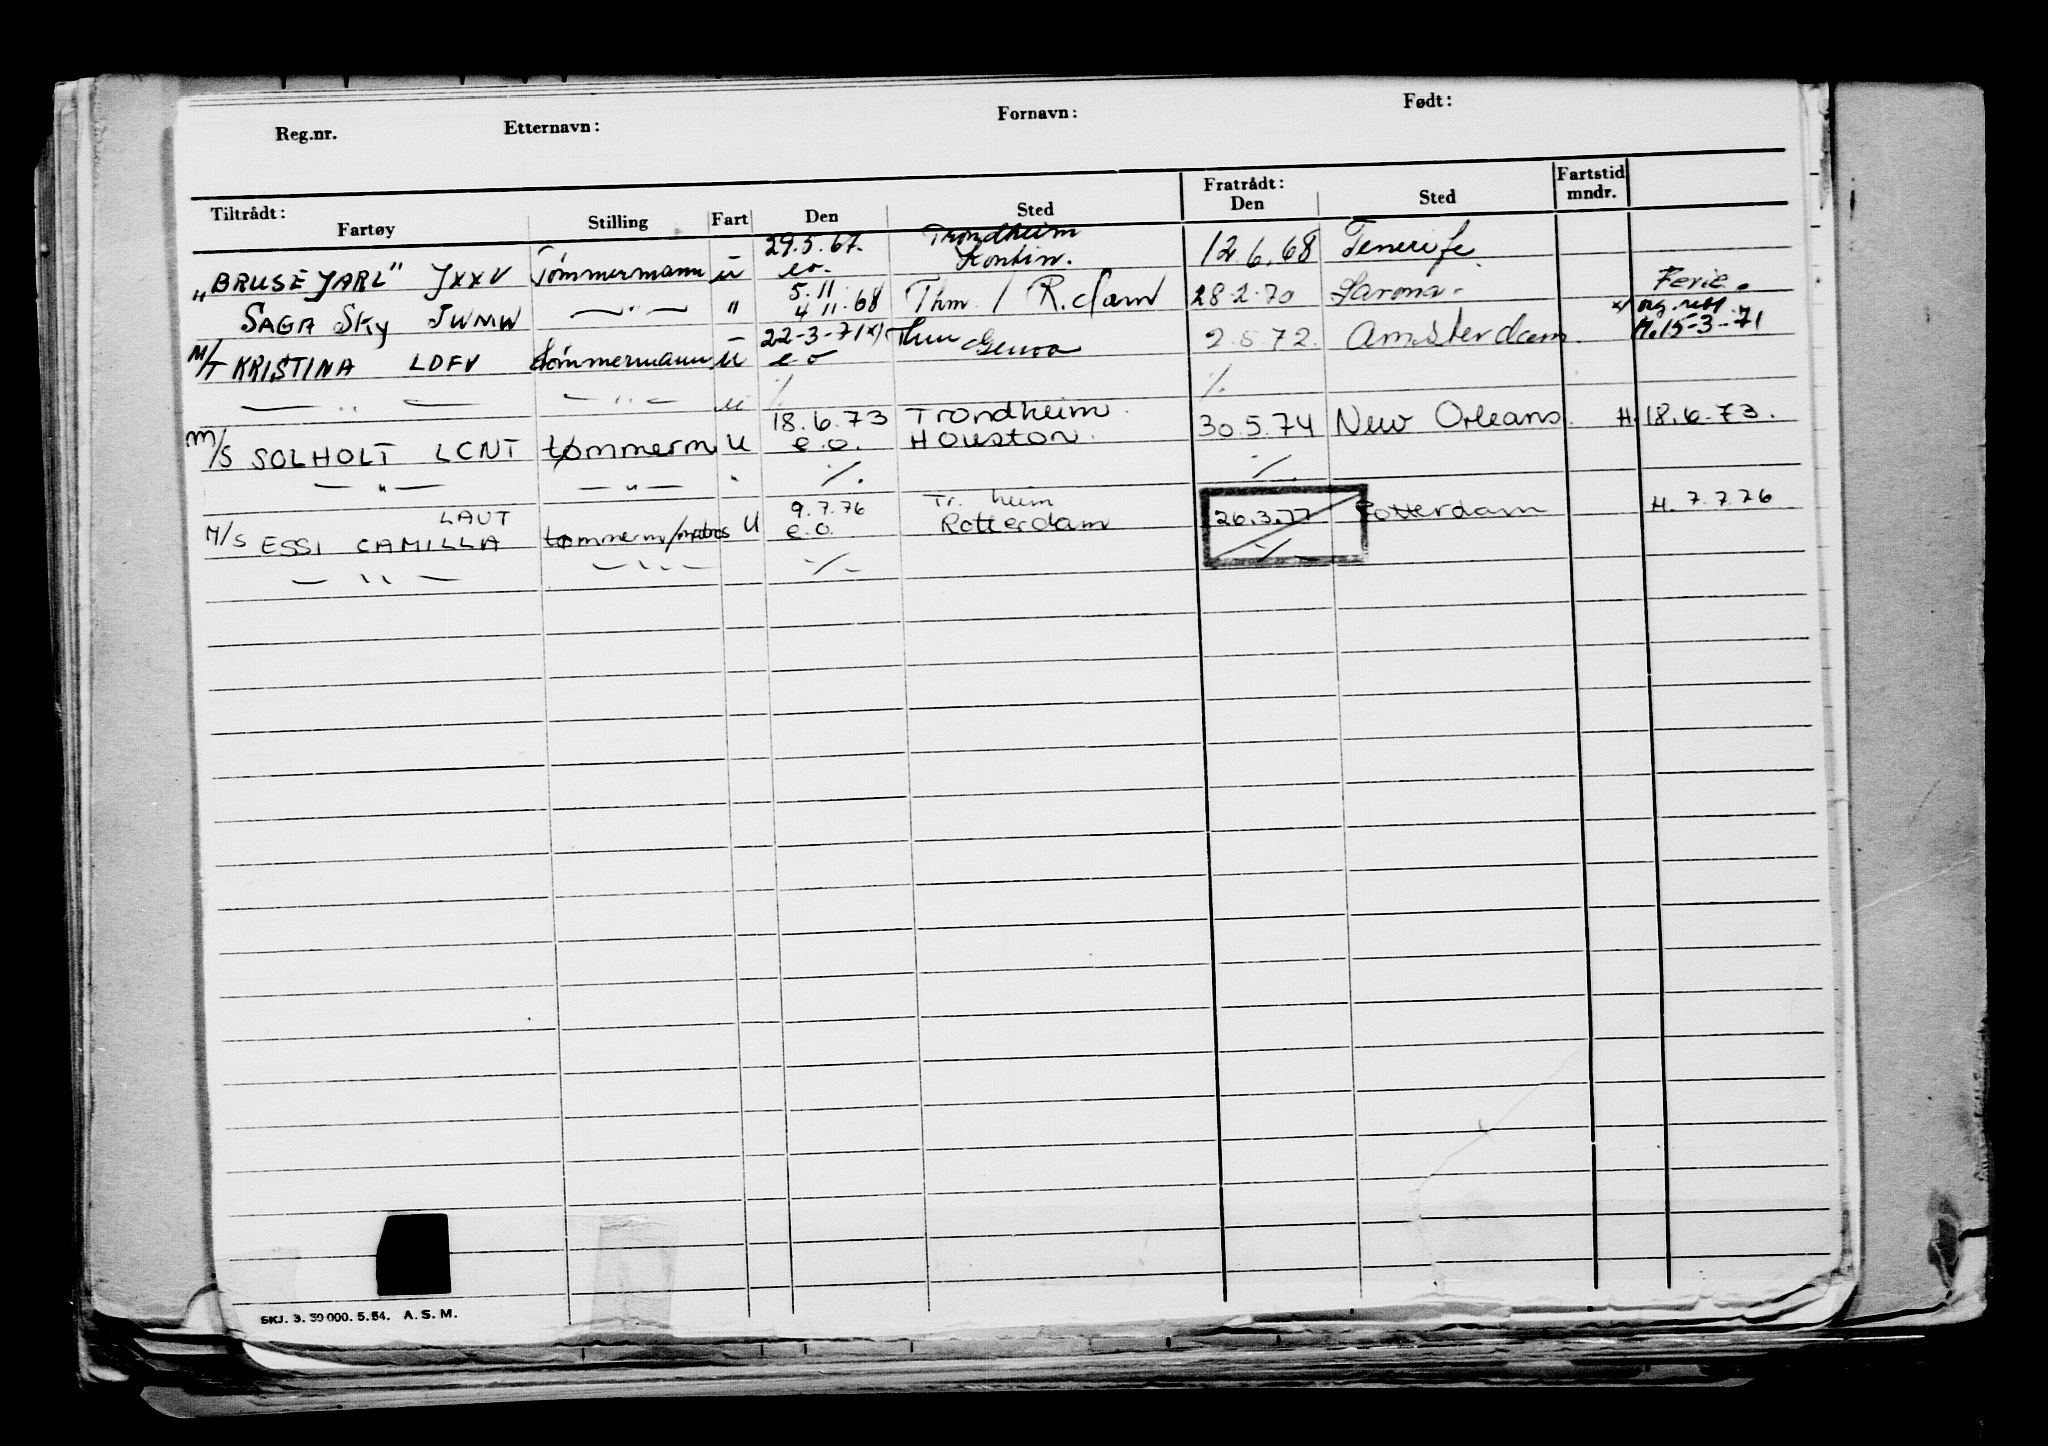 Reg.nr. Etternavn: Fornavn: Født:
Tiltrådt: Fratrådt: Fartstid
Fartøy Stilling Fart Den Sted Den Sted mndr.
29.5.67. Trondheim
"BRUSE JARL" JXXV Tømmermann u e.o. Kontin. 12.6.68 Tenerife
5.11 Ferie.
SAGA SKY JWMW — " — " 4 11.68 Thm / R.dam 28.2.70 Savona.
22-3-71 x) Thm x/
M/T KRISTINA LDFV tømmermann u e o Genoa 2.5.72. Amsterdam. H.15-3-71
— " — — " — u % %
18.6.73 Trondheim.
M/S SOLHOLT LCNT tømmerm u e.o. Houston. 30.5.74 New Orleans. H.18.6.73.
— " — — " — " %. %.
LAUT 9.7.76 Tr.heim
M/S ESSI CAMILLA tømmerm/matros U e.o. Rotterdam 26.3.77 Rotterdam H. 7.7.76
— " — — " — %- %-
SKJ. 3. 50 000. 5.64. A. S. M.